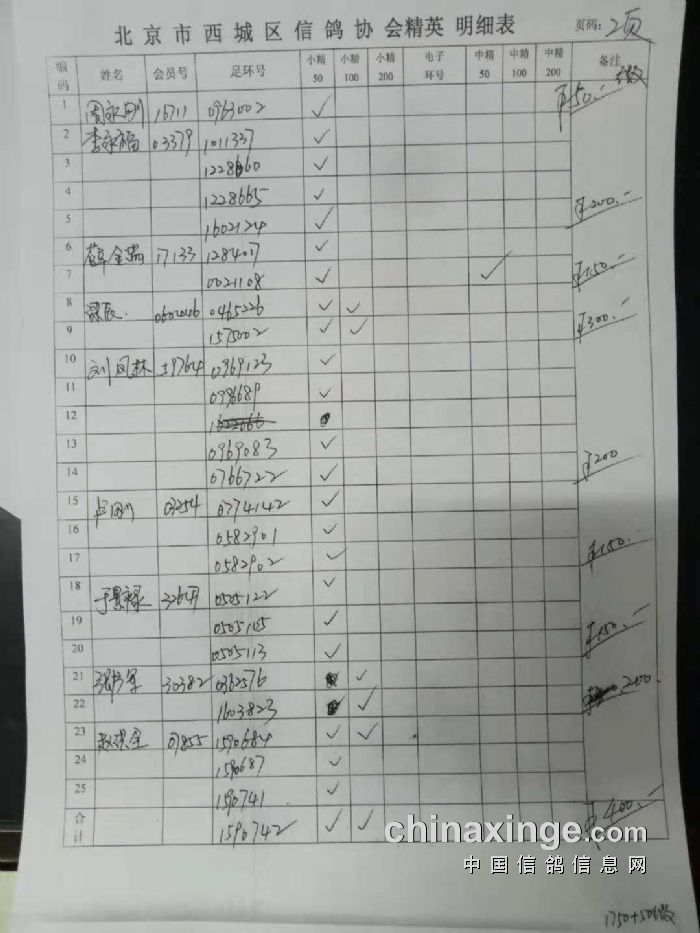 北京市西城区信鸽协会精英 明细表
页码: 2页
编码 姓名 会员号 足环号 小精50 小精100 小精200 电子环号 中精50 中精100 中精200 备注
1 周永刚 16711 0963002 ✓ ¥50.-
2 李永福 03379 1011337 ✓
3 1228660 ✓
4 1228665 ✓
5 1602124 ✓ ¥200.-
6 薛金瑞 17133 128407 ✓
7 0021108 ✓ ✓ ¥150.-
8 0602046 0465226 ✓ ✓
9 1575002 ✓ ✓ ¥300.-
10 刘凤林 0969123 ✓
11 0996689 ✓
12
13 0969083 ✓
14 0766722 ✓ ¥200
15 卢刚 03254 0774142 ✓
16 0582901 ✓
17 0582902 ✓ ¥150.-
18 于景禄 0505122 ✓
19 0505105 ✓
20 0505113 ✓ ¥150.-
21 30382 0362576 ✓
22 1603823 ✓ 200.-
23 07855 1590684 ✓ ✓
24 1590687 ✓
25 1590741 ✓
合计 1590742 ✓ ✓ ¥400.-
chinaxinge.com
中国信鸽信息网